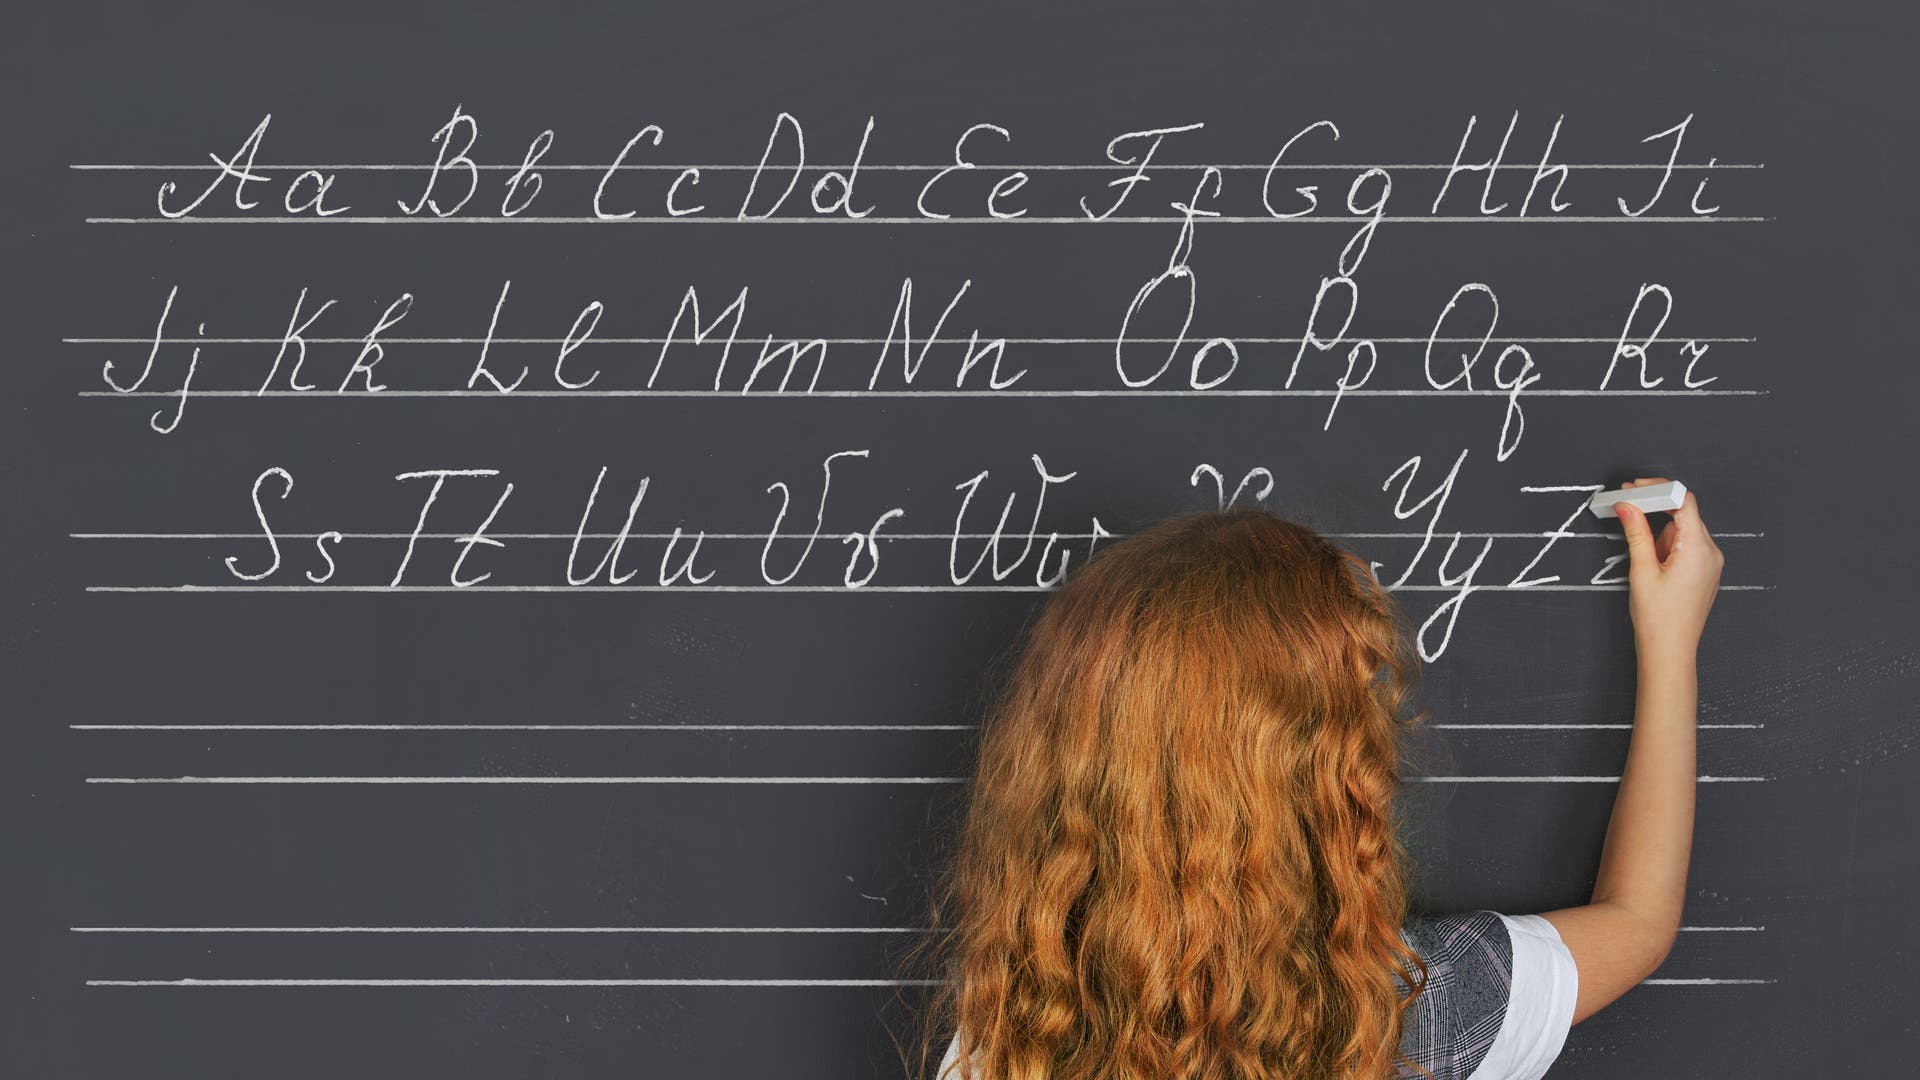 Aa Bb Cc Dd Ee Ff Gg Hh Ii
Jj Kk Ll Mm Nn Oo Pp Qq Rr
Ss Tt Uu Vv Ww X Yy Zz